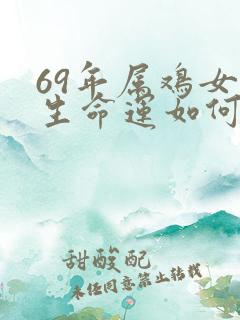 69年属鸡女
生命运如何
甜酸配
未经同意禁止转载